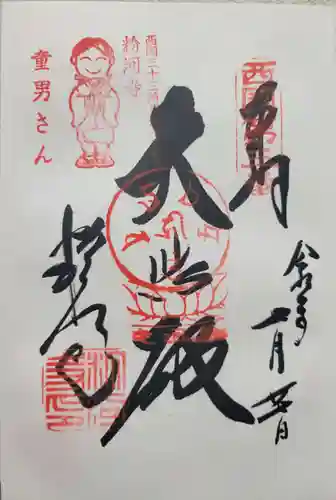 奉拝
西国第三番
大悲殿
西国三十三所
粉河寺
童男さん
粉河寺
令和
二月
日